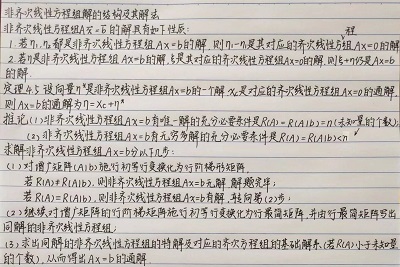 非齐次线性方程组解的结构及其解法
非齐次线性方程组Ax=b的解具有如下性质:
程
1.若η₁,η₂都是非齐次线性方程组Ax=b的解,则η₁-η₂是其对应的齐次线性方组Ax=0的解
2.若η是非齐次线性方程组Ax=b的解,ξ是其对应的齐次线性方程组Ax=0的解,则ξ+η仍是Ax=b
的解.
定理4.5 设向量η*是非齐次线性方程组Ax=b的一个解 xc是对应的齐次线性方程组Ax=0的通解.
则Ax=b的通解为η=xc+η*
推论(1)非齐次线性方程组Ax=b有唯一解的充分必要条件是R(A)=R(A|b)=n(未知量的个数);
(2)非齐次线性方程组Ax=b有无穷多解的充分必要条件是R(A)=R(A|b)<n
求解非齐次线性方程组Ax=b分以下几步:
(1)对增广矩阵(A|b)施行初等行变换化为行阶梯形矩阵.
若R(A)≠R(A|b),则非齐次线性方程组Ax=b无解,解题完毕;
若R(A)=R(A|b),则非齐次线性方程组Ax=b有解,转向第(2)步;
(2)继续对增广矩阵的行阶梯矩阵施行初等行变换化为行最简矩阵,并由行最简矩阵写出
同解的非齐次线性方程组;
(3)求出同解的非齐次线性方程组的特解及对应的齐次方程组的基础解系(若R(A)小于未知量
的个数),从而得出Ax=b的通解